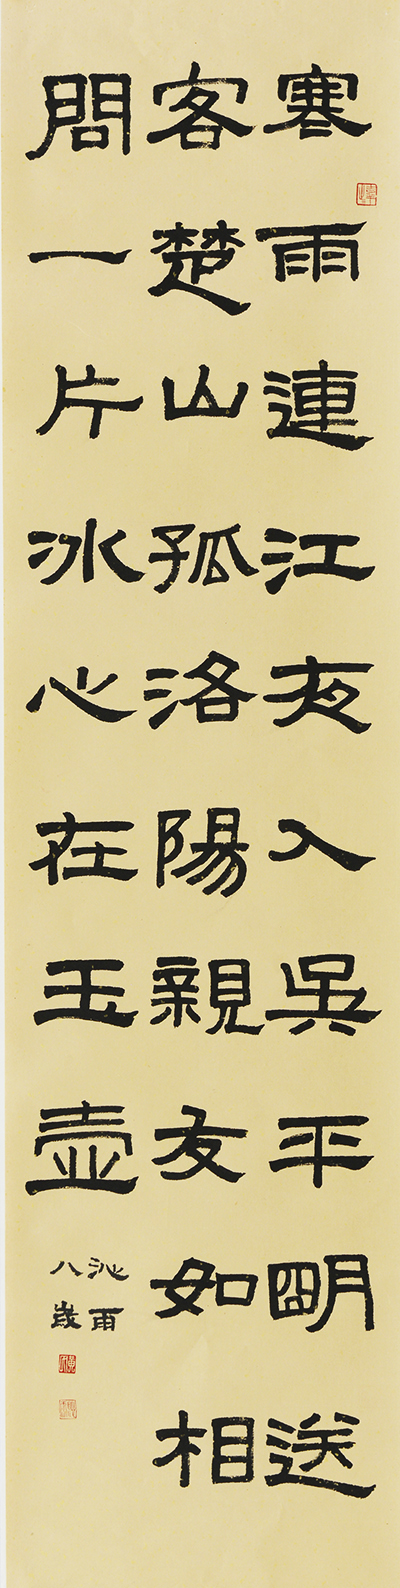 寒雨連江夜入吳平明送
客楚山孤洛陽親友如相
問一片冰心在玉壺
沁雨
八歲